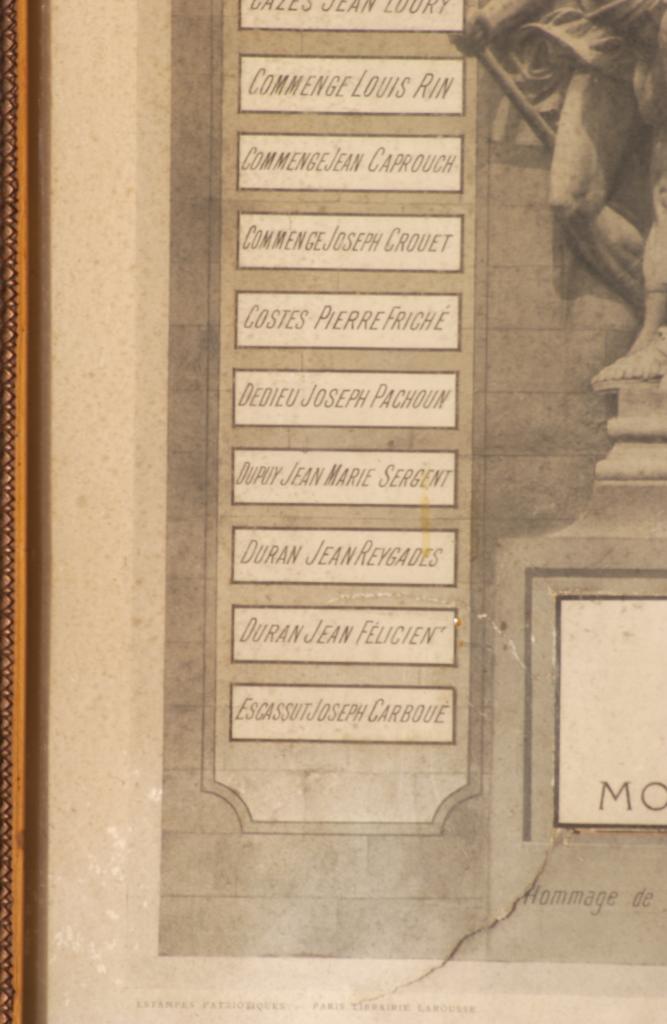 CAZES JEAN LOURY
COMMENGE LOUIS RIN
COMMENGE JEAN CAPROUCH
COMMENGE JOSEPH CROUET
COSTES PIERRE FRICHÉ
DEDIEU JOSEPH PACHOUN
DUPUY JEAN MARIE SERGENT
DURAN JEAN REYGADES
DURAN JEAN FÉLICIEN
ESCASSUT JOSEPH CARBOUÉ
MO
Hommage de
ESTAMPES PATRIOTIQUES - PARIS LIBRAIRIE LAROUSSE